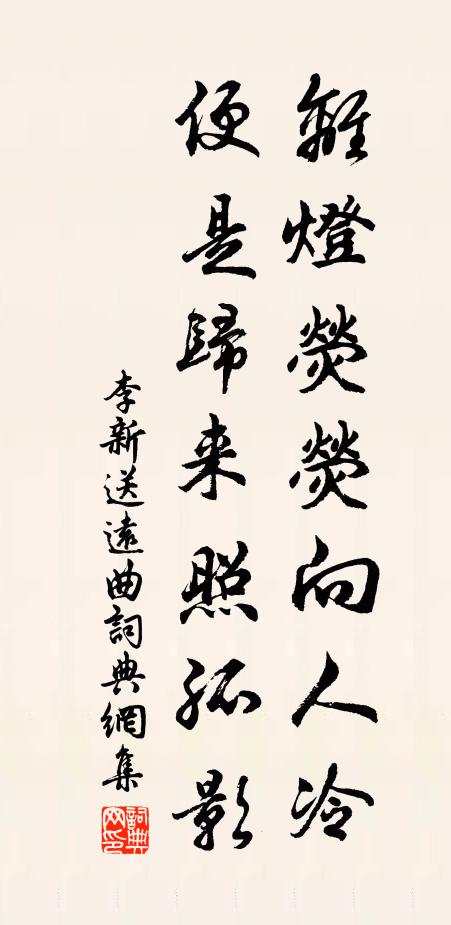 離燈熒熒向人冷
便是歸来照孤影
李新送遠曲詞典網集
詞典
网印